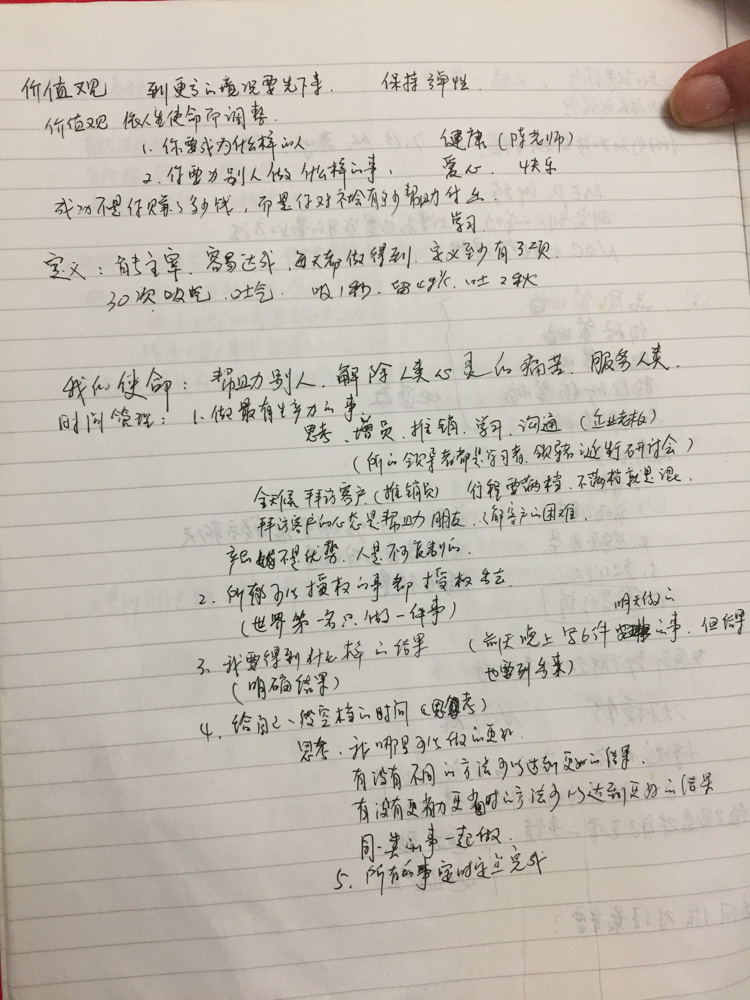 价值观 到更高的境况要先下来. 保持弹性.
价值观 依人生使命而调整.
1. 你要成为什么样的人 健康 (陈老师)
2. 你要为别人做什么样的事. 爱心. 快乐
成功不是你赚了多少钱, 而是你对社会有多少帮助付出.
学习
定义: 自己主宰. 容易达成. 每天都做得到. 定义至少有30项.
30次 吸气. 吐气. 吸1秒. 留4秒. 吐2秒
我的使命: 帮助别人. 解除人类心灵的痛苦. 服务人类.
时间管理: 1. 做最有生产力的事
思考. 增员. 推销. 学习. 沟通 (企业老板)
(所以领导者都是学习者. 领导者必进行研讨会)
全天候 拜访客户 (推销员) 行程要满档. 不满档就是混.
拜访客户的心态是帮助朋友. 了解客户的困难.
产品不是优势. 人是不可复制的.
2. 所有可以授权的事都授权出去
(世界第一名只做一件事)
3. 我要得到什么样的结果 (前天晚上写6件明天做的事. 但结果
(明确结果) 也要列出来)
4. 给自己一段空档的时间 (思考)
思考. 我哪里可以做的更好
有没有不同的方法可以达到更好的结果.
有没有更省力更省时的方法可以达到更好的结果
同一类的事一起做.
5. 所有的事定时定点完成